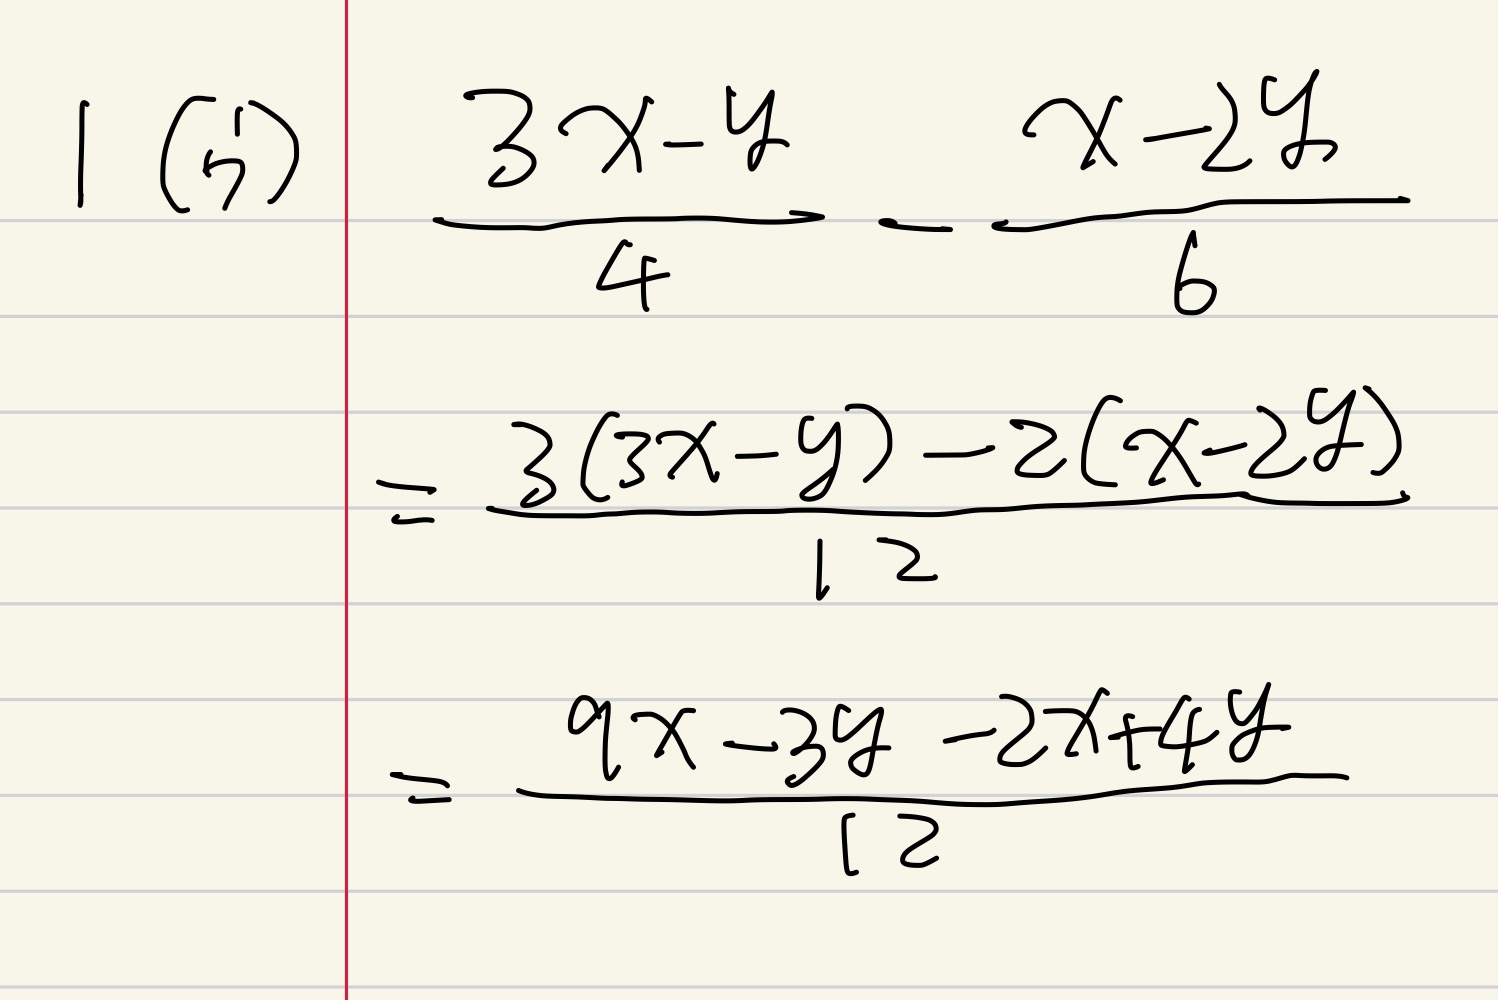 1 (ウ) (3x-y)/4 - (x-2y)/6
= (3(3x-y)-2(x-2y))/12
= (9x-3y-2x+4y)/12